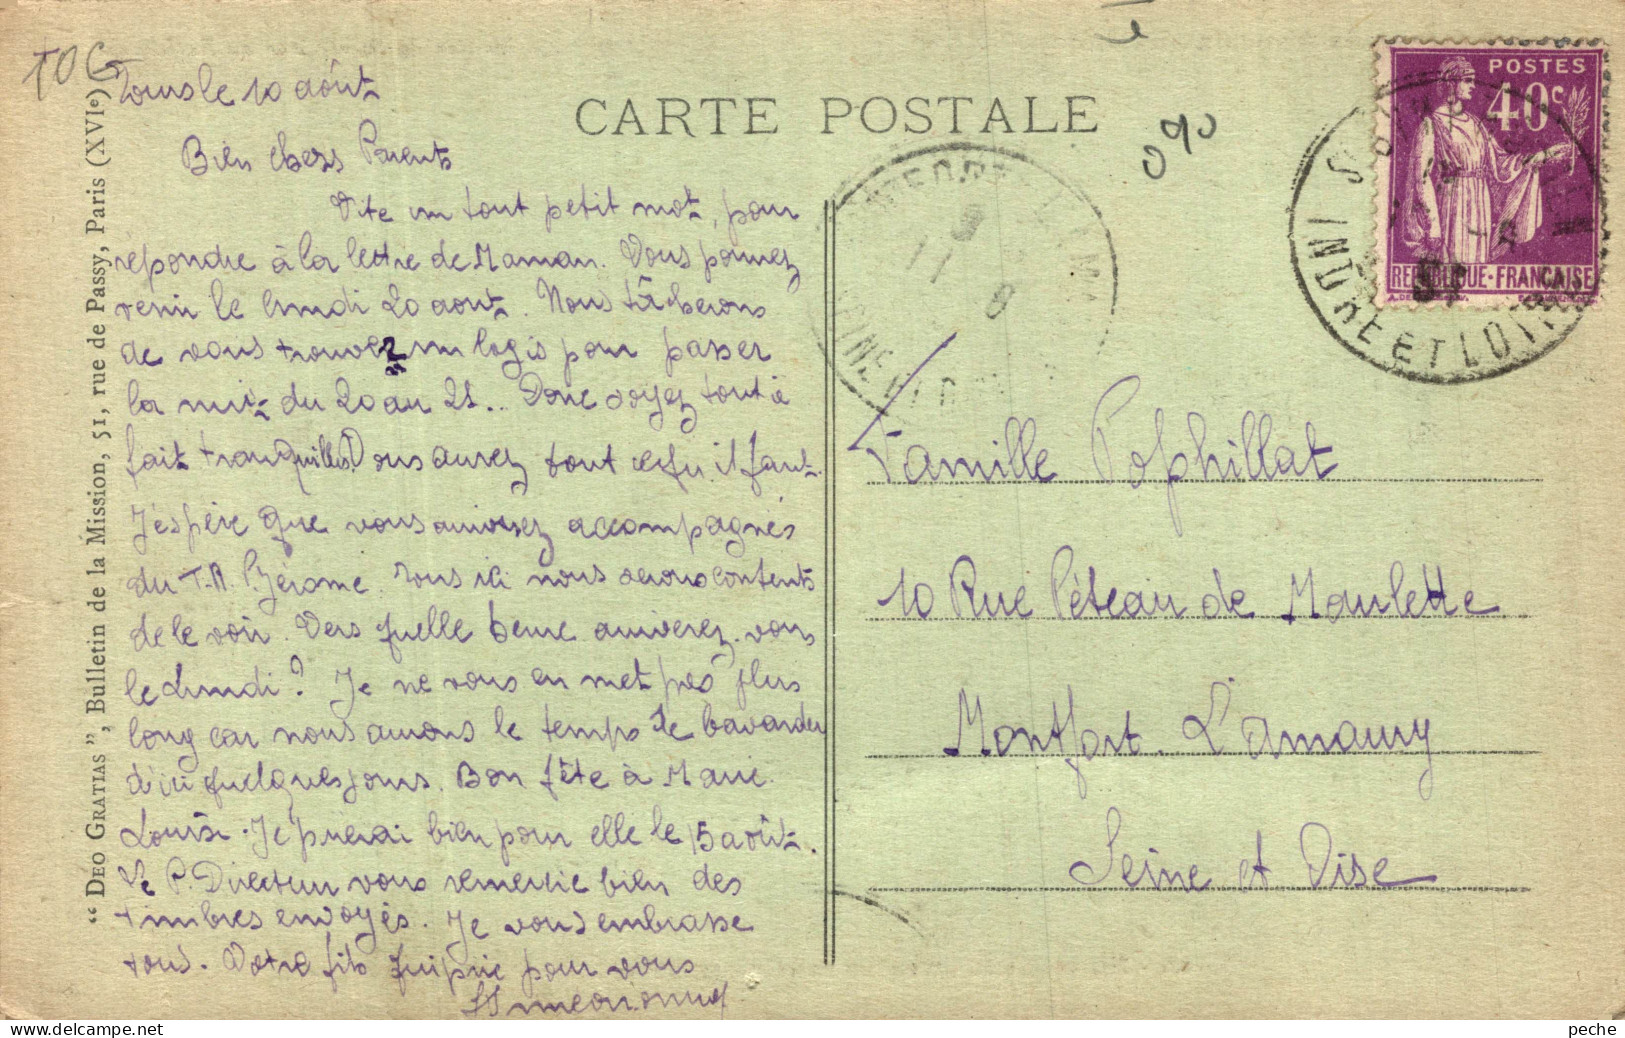 TOG
Tours le 10 août
Bien chers Parents
Vite un tout petit mot, pour
répondre à la lettre de Maman. Vous pouvez
venir le lundi 20 aout. Nous tâcherons
de vous trouver un logis pour passer
la nuit du 20 au 21.. Donc soyez tout à
fait tranquilles. Vous aurez tout ce qu'il faut.
J'espère que vous arriverez accompagnés
du T.R. P. Jérome. Tous ici nous serons contents
de le voir. Vers quelle heure arriverez-vous
le lundi? Je ne vous en met pas plus
long car nous aurons le temps de bavarder
d'ici quelques jours. Bon fête à Marie
Louise. Je prierai bien pour elle le 15 août.
Le P. Directeur vous remercie bien des
timbres envoyés. Je vous embrasse
tous. Votre fils qui prie pour vous
“ DEO GRATIAS ”, Bulletin de la Mission, 51, rue de Passy, Paris (XVIe)
CARTE POSTALE
POSTES
40c
REPUBLIQUE·FRANÇAISE
INDRE ET LOIRE
Famille Pophillat
10 Rue Péteau de Maulette
Montfort L'amaury
Seine et Oise
peche